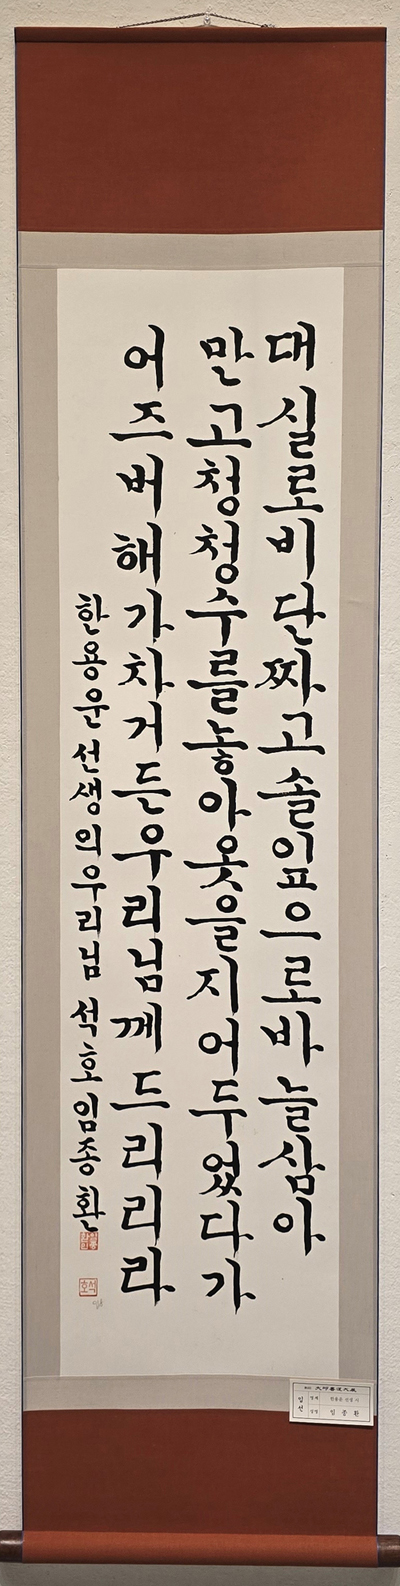 대실로비단짜고솔잎으로바늘삼아
만고청청수를놓아옷을지어두었다가
어즈버해가차거든우리님께드리리라
한용운선생의우리님 석호임종환
석호
입선
한용운 선생 시
임종환